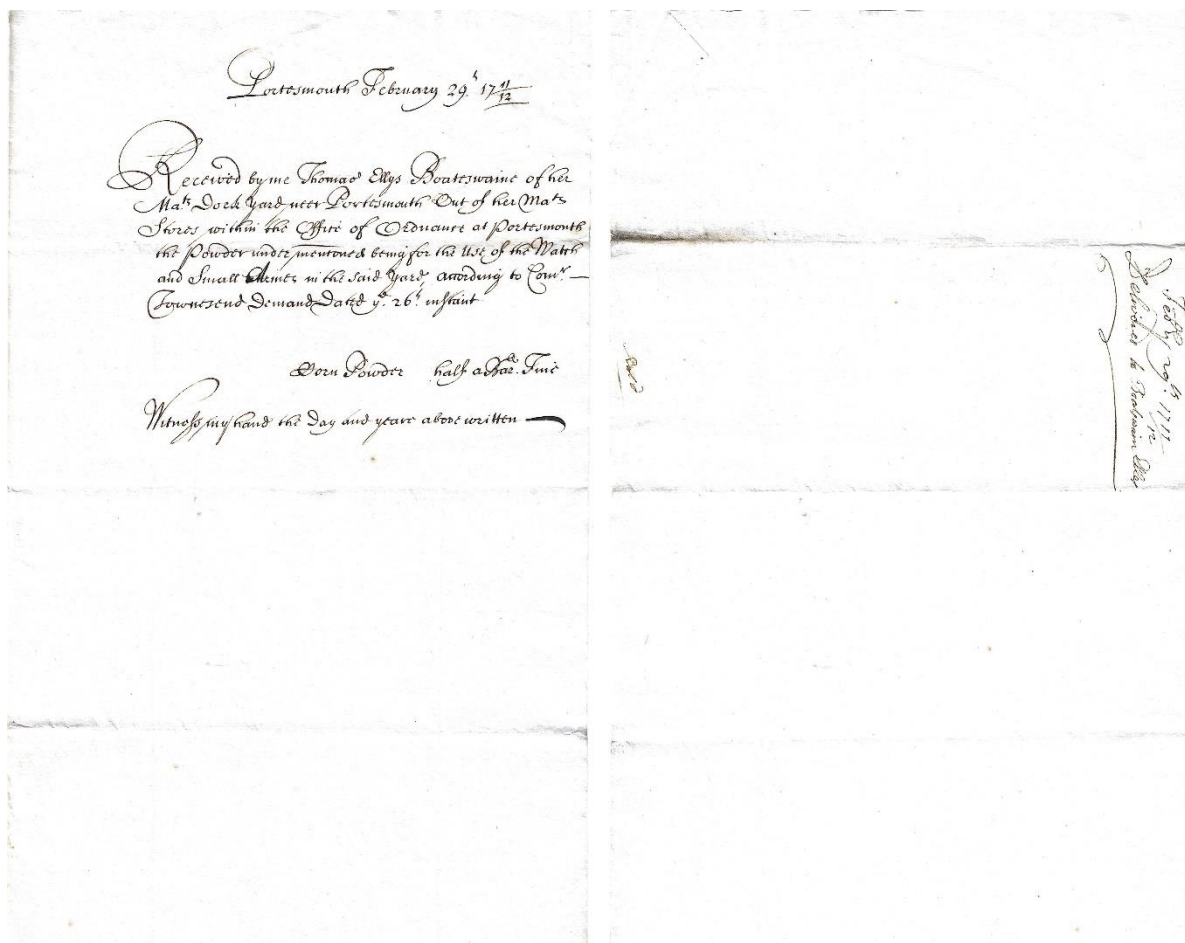 Portesmouth February 29th 17 11/12
Received by me Thomas Ellys Boateswaine of her
Mats Dock Yard neer Portesmouth Out of her Mats
Stores within the Office of Ordnance at Portesmouth
the Powder under mentioned being for the Use of the Watch
and Small Armes in the said Yard, according to Comr. —
Townesend Demand Dated ye. 26th instant
Corn Powder half a Barll. Fine
Witness my hand the Day and yeare above written —
Febry 29th 17 11/12
Delivered to Boatswain Ellys